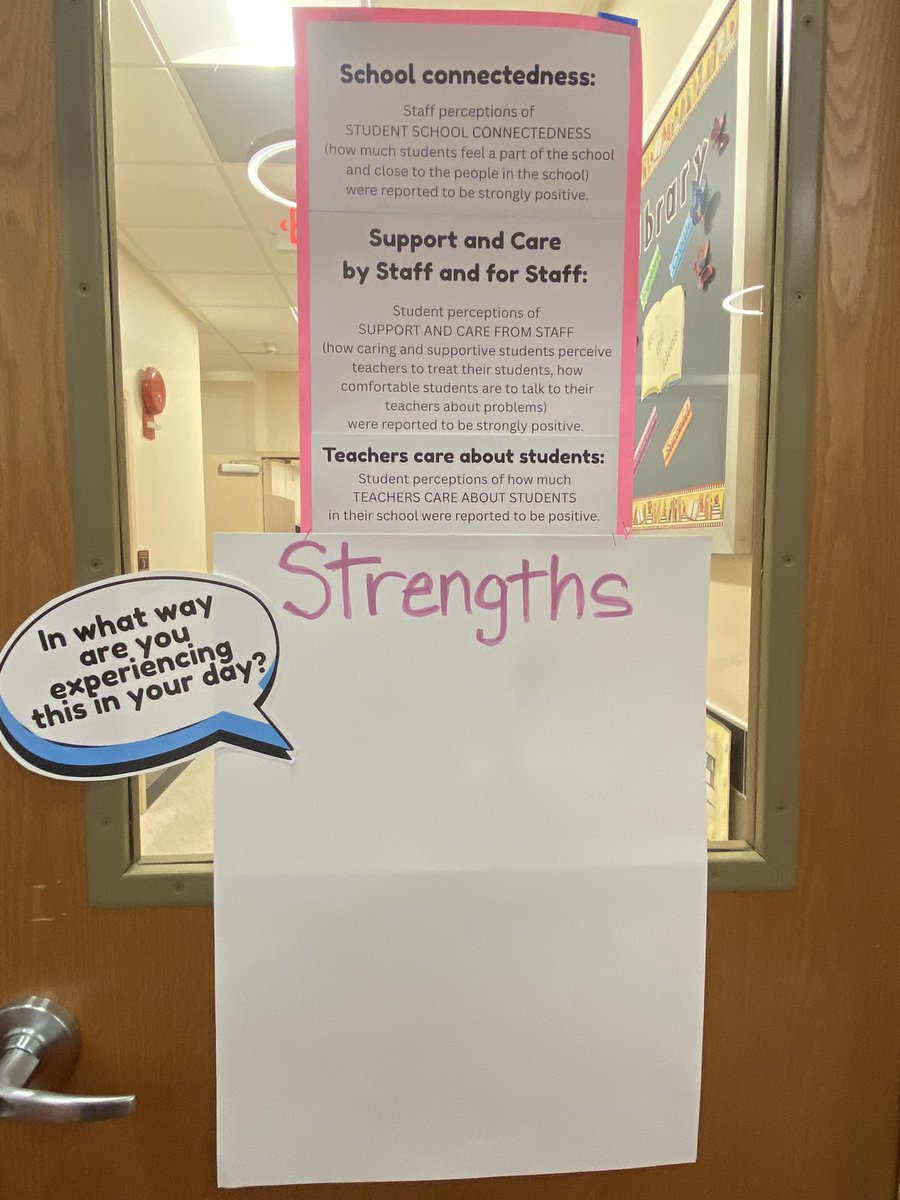 School connectedness:
Staff perceptions of
STUDENT SCHOOL CONNECTEDNESS
(how much students feel a part of the school
and close to the people in the school)
were reported to be strongly positive.
Support and Care
by Staff and for Staff:
Student perceptions of
SUPPORT AND CARE FROM STAFF
(how caring and supportive students perceive
teachers to treat their students, how
comfortable students are to talk to their
teachers about problems)
were reported to be strongly positive.
Teachers care about students:
Student perceptions of how much
TEACHERS CARE ABOUT STUDENTS
in their school were reported to be positive.
Strengths
In what way
are you
experiencing
this in your day?
brary